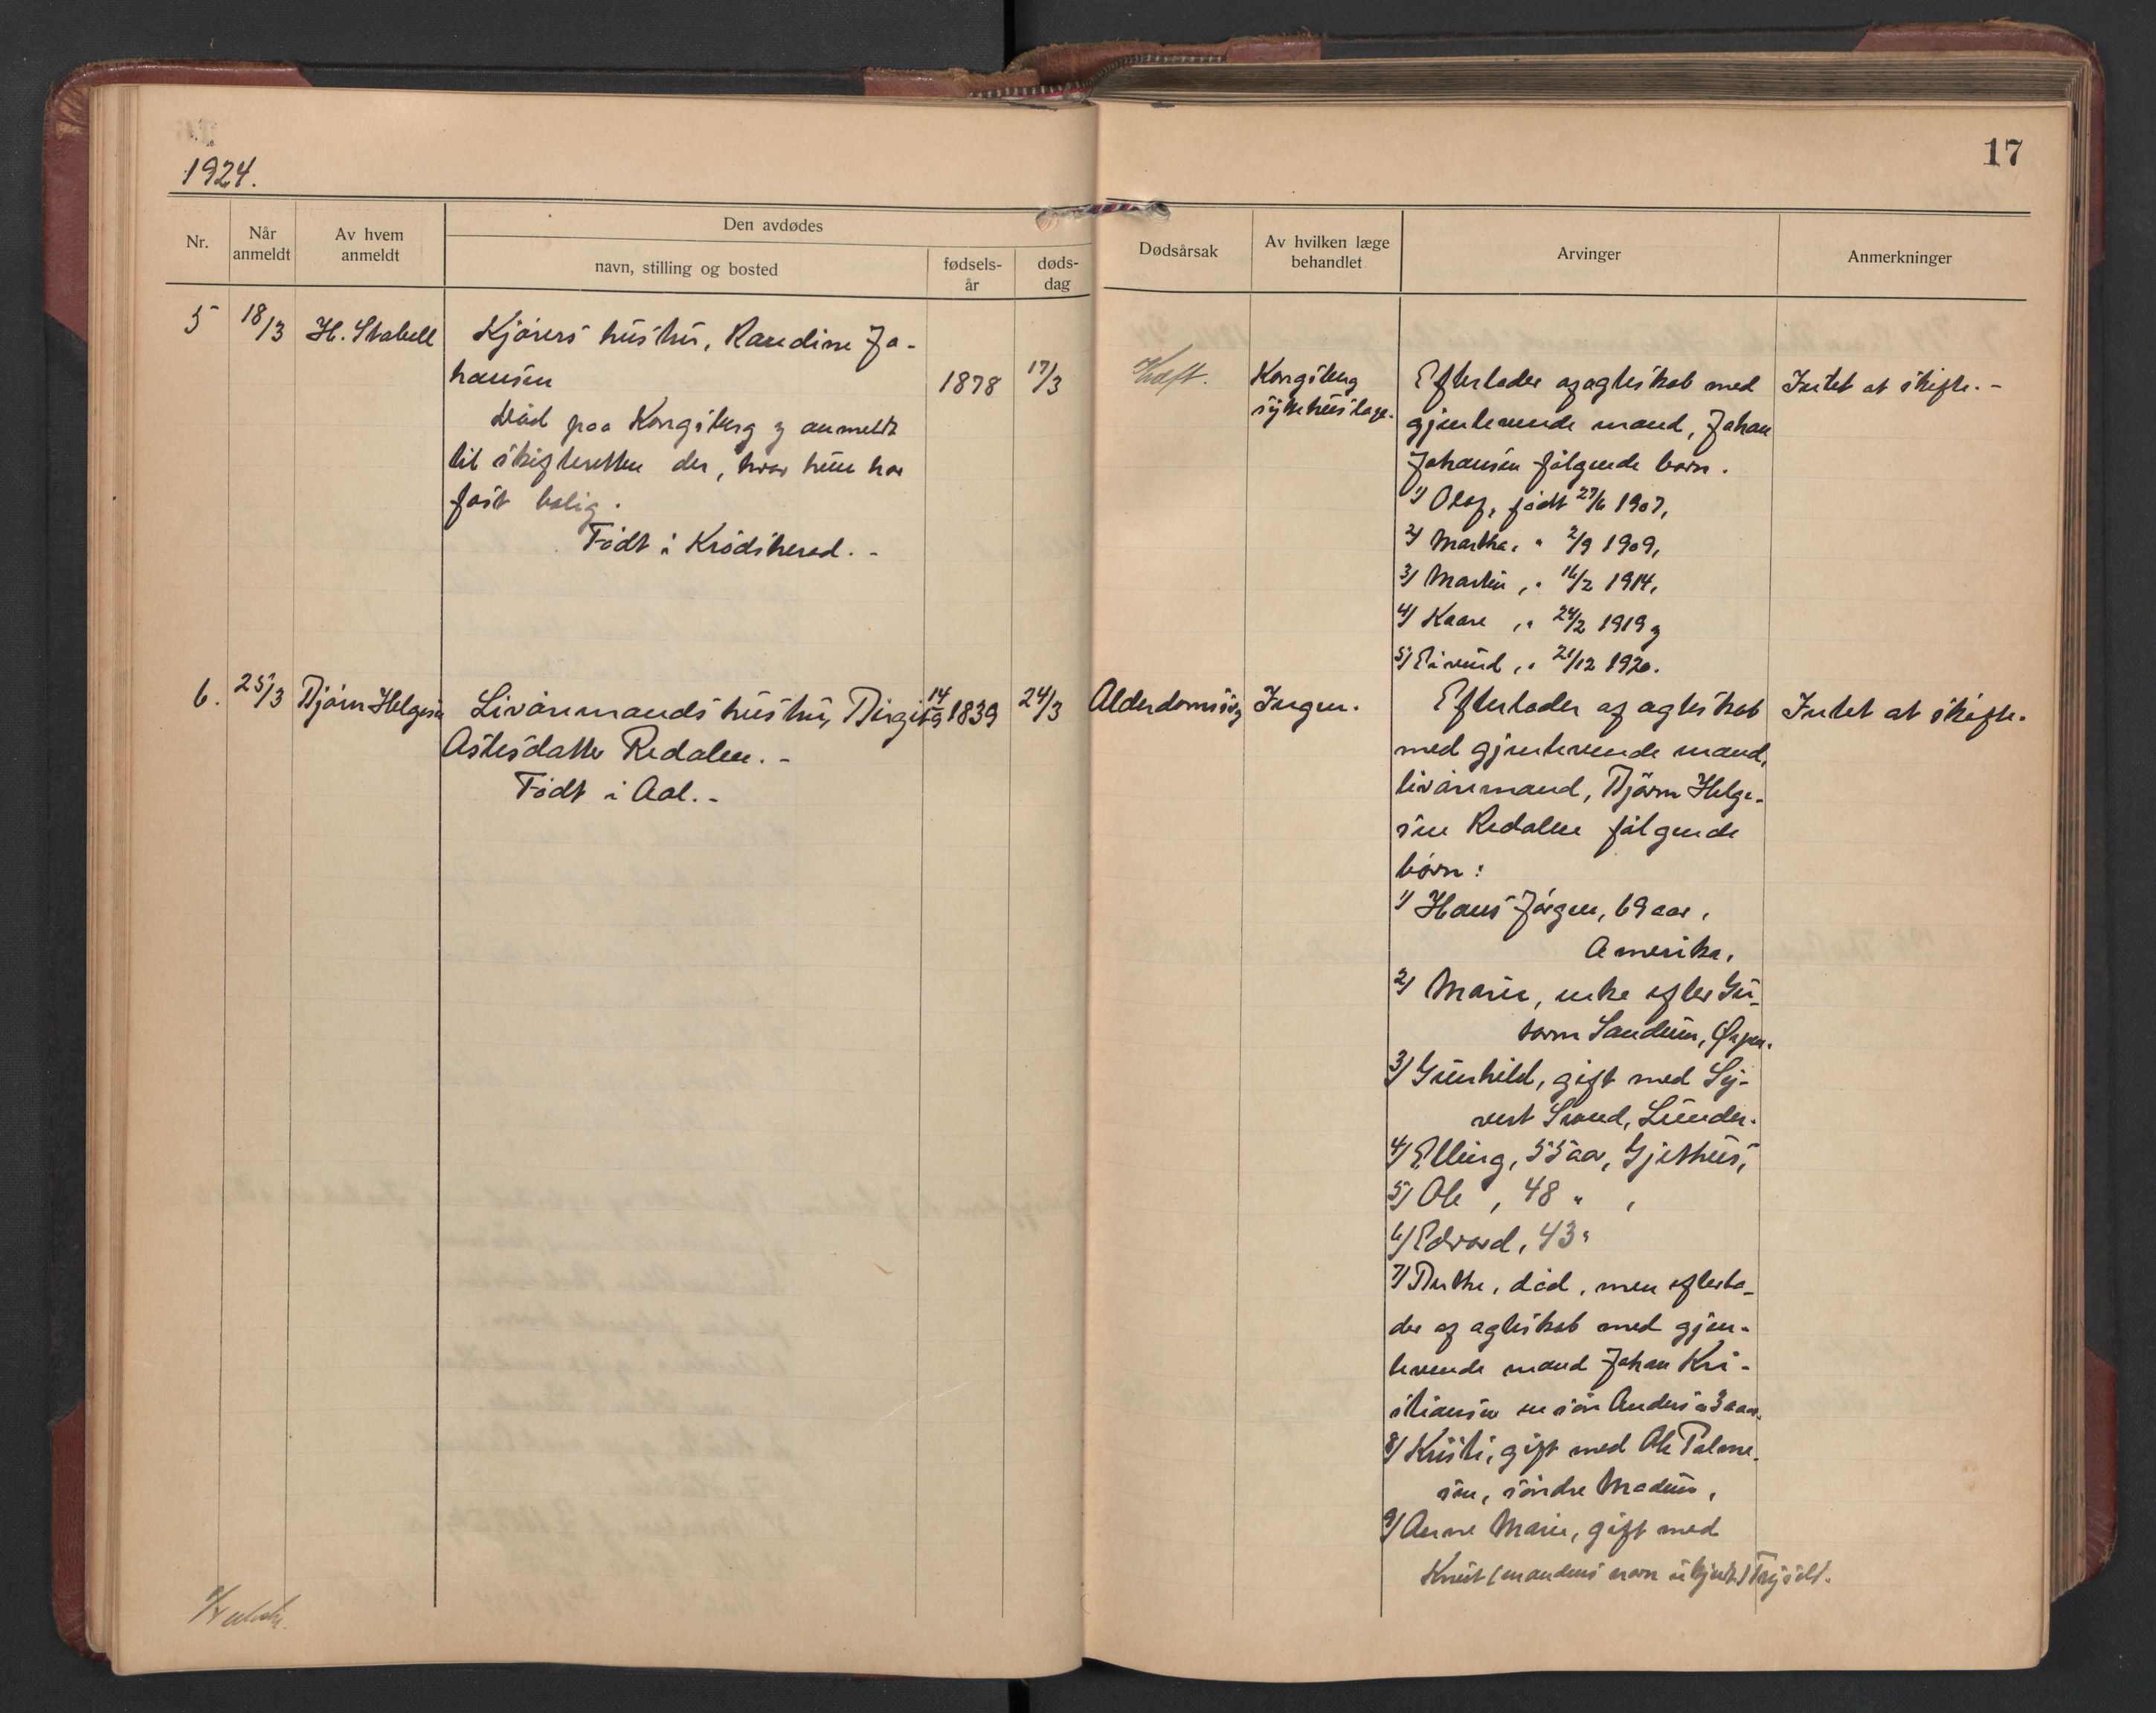 1924.
17
Nr.
Når
anmeldt
Av hvem
anmeldt
Den avdødes
navn, stilling og bosted
fødsels-
år
døds-
dag
Dødsårsak
Av hvilken læge
behandlet
Arvinger
Anmerkninger
5
18/3
H. Stabell
Kjörers hustru, Raredine Jo-
hansen
Död paa Kongsberg og anmeldt
til skifteretten der, hvor hun har
fast bolig.
Födt i Krödsherad. -
1878
17/3
Kræft.
Kongsberg
sykehuslæge.
Efterlader af ægteskab med
gjenlevende mand, Johan
Johansen följende barn.
1) Olaf, födt 27/6 1907,
2) Martha, " 2/9 1909,
3) Martin, " 16/2 1914,
4) Kaare, " 24/2 1919 og
5) Eivind, " 21/12 1920.
Intet at skifte. -
6.
25/3
Björn Helgesen
Livöremands hustru, Birgit
Aslesdatter Redalen. -
Födt i Aal. -
14/9 1839
24/3
Alderdomssvag
Ingen.
Efterlader af ægteskab
med gjenlevende mand,
livöremand, Björn Helge-
sen Redalen fölgende
börn:
1) Hans Jörgen, 69 aar,
Amerika,
2) Marie, enke efter Gu-
torm Sandum,
3) Gunhild, gift med Sy-
vert Strand, Lunder.
4) Elling, 55 aar, Gjethus,
5) Ole, 48 " ,
6) Edvard, 43 "
7) Berthe, död, men efterla-
der af ægteskab med gjen-
levende mand Johan Kri-
stiansen en sön Anders 23 aar.
8) Kristi, gift med Ole Palme-
sen, söndre Modum,
9) Anne Marie, gift med
Knut (mandens navn ukjendt) Trysil.
Intet at skifte.